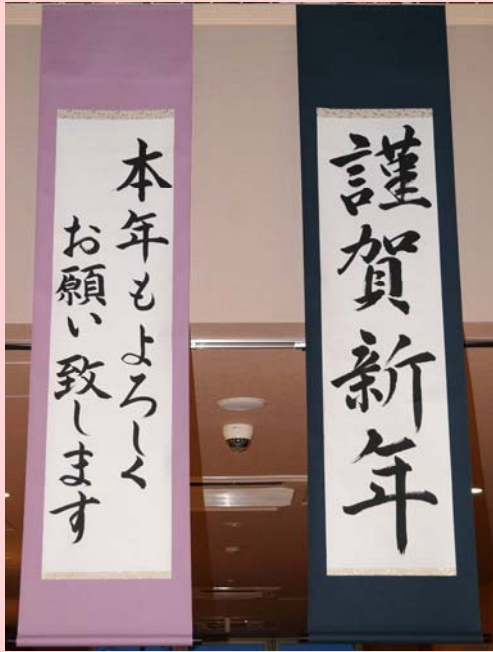 謹賀新年
本年もよろしく
お願い致します